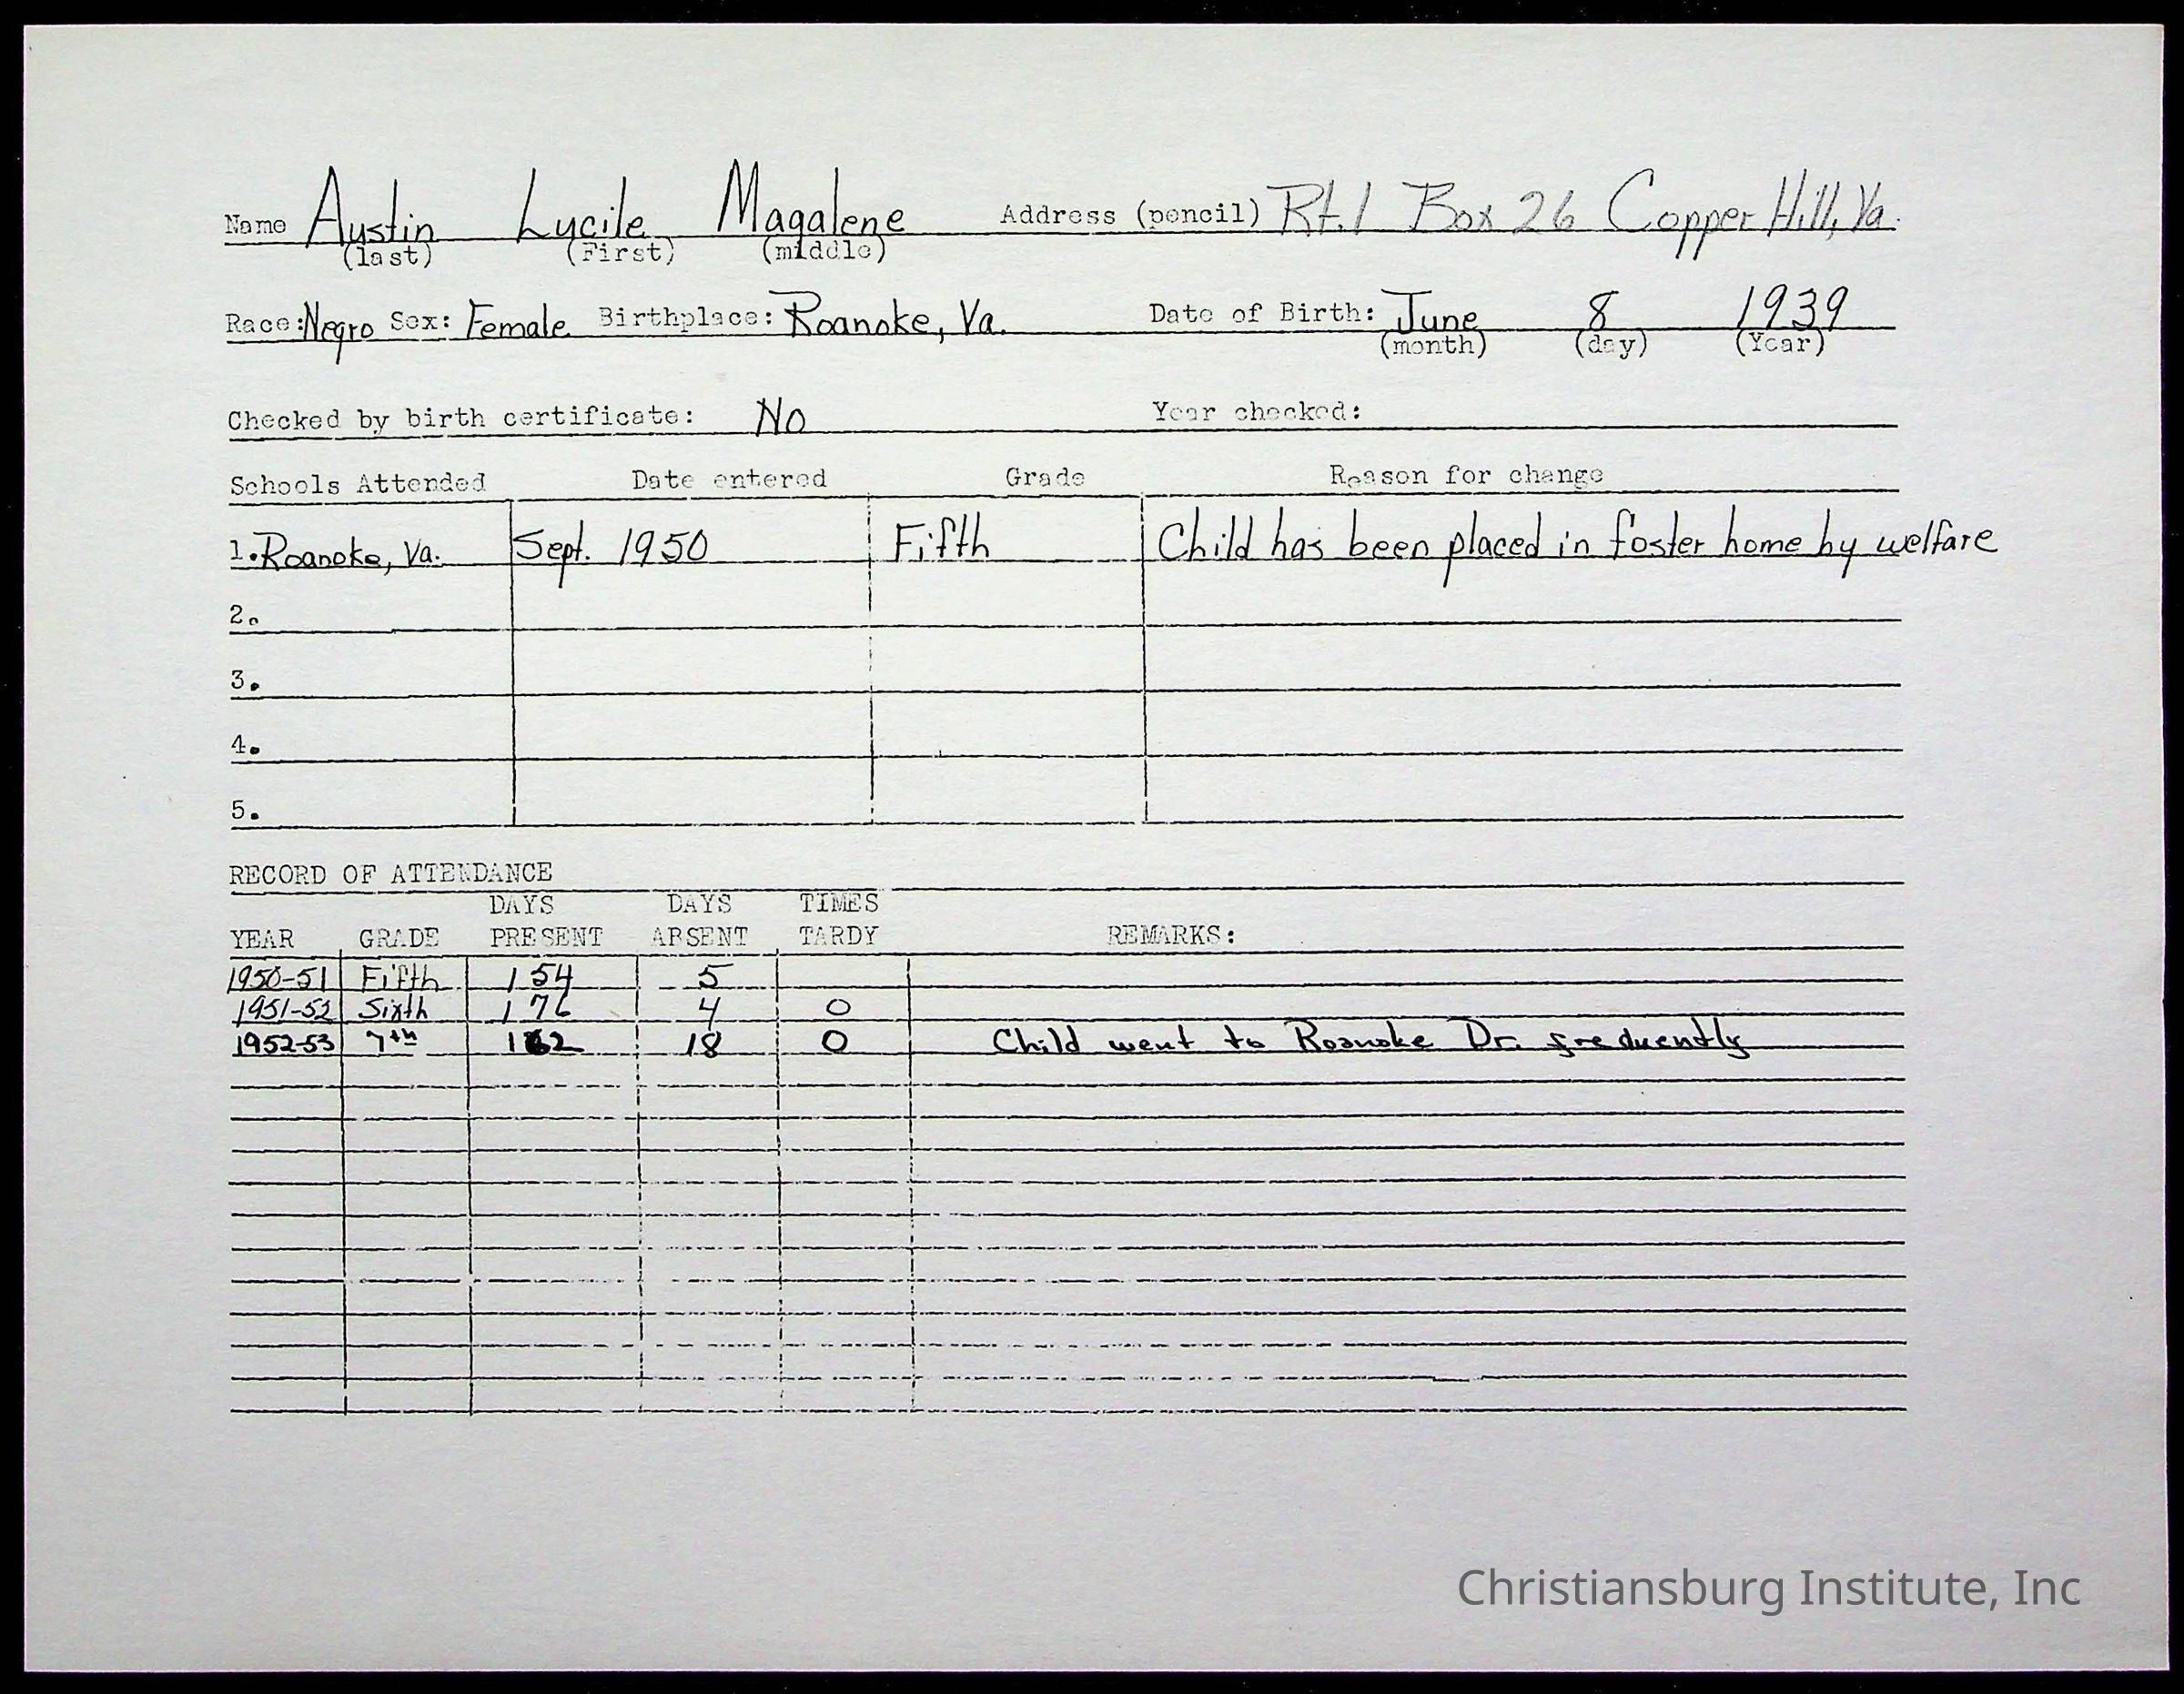 Name Austin Lucile Magalene Address (pencil) Rt. 1 Box 26 Copper Hill, Va.
(last) (First) (middle)
Race: Negro Sex: Female Birthplace: Roanoke, Va. Date of Birth: June 8 1939
(month) (day) (Year)
Checked by birth certificate: No Year checked:
Schools Attended Date entered Grade Reason for change
1. Roanoke, Va. Sept. 1950 Fifth Child has been placed in foster home by welfare
2.
3.
4.
5.
RECORD OF ATTENDANCE
DAYS DAYS TIMES
YEAR GRADE PRESENT ABSENT TARDY REMARKS:
1950-51 Fifth 154 5
1951-52 Sixth 176 4 0
1952-53 7th 162 18 0 Child went to Roanoke Dr. frequently
Christiansburg Institute, Inc